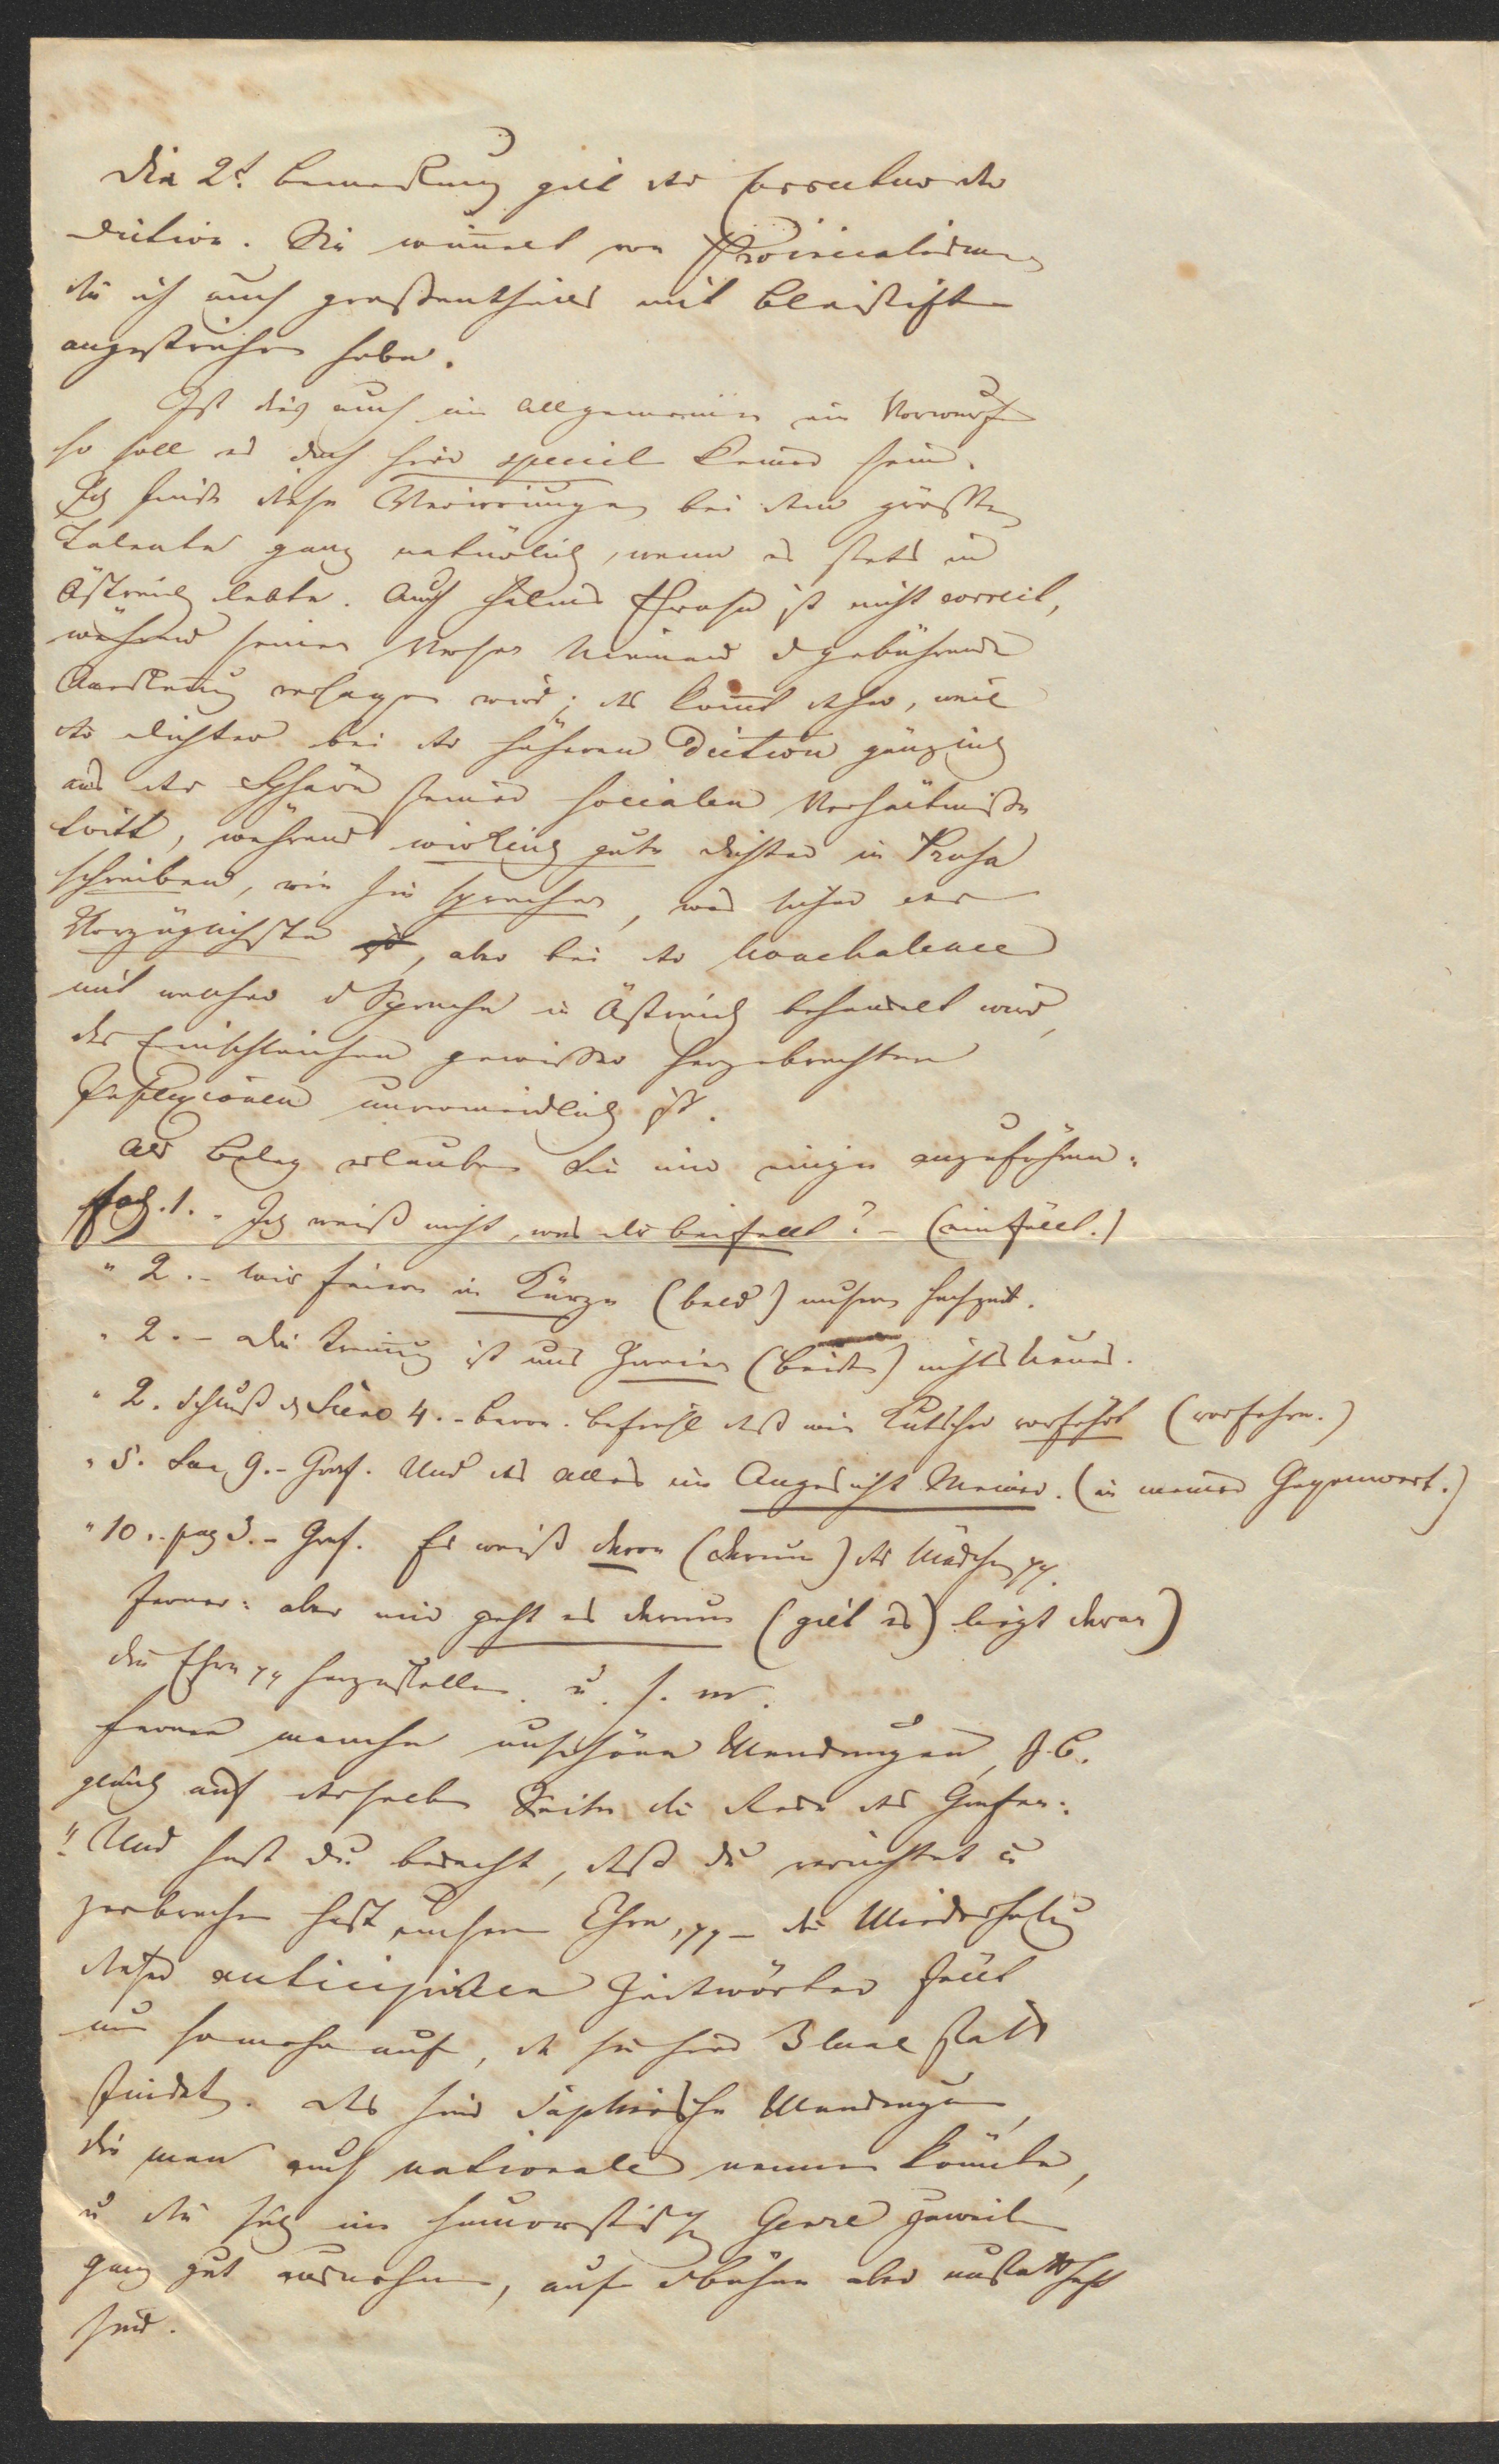 Die 2t. Bemerkung gilt der Correctur der
Diction. Sie wimmelt von Provincialismen
die ich auch großentheils mit Bleistift
angestrichen habe.
Ist dieß auch im Allgemeinen ein Vorwurf
so soll es doch hier speciel keiner sein.
Ich finde diese Verirrungen bei dem größten
Talente ganz natürlich, wenn es stets in
Östreich lebte. Auch Halms Prosa ist nicht correct,
während seinen Versen Niemand d gebührende
Anerkennung versagen wird; das kommt daher, weil
der Dichter bei der höheren Diction gänzlich
aus der Sphäre seiner socialen Verhältniße
tritt, während wirklich gute Dichter in Prosa
schreiben, wie sie sprechen, was sicher das
Vorzüglichste ist, aber bei der Nonchalence
mit welcher d Sprache in Östreich behandelt wird,
das Einschleichen gewißer hergebrachten
Inflexionen unvermeidlich ist.
Als Beleg erlauben Sie mir einige anzuführen:
Pag. 1. - Ich weiß nicht, was dir beifallt? - (einfällt.)
" 2. - Wir feiern in Kürze (bald) unsere Hochzeit.
" 2. - Die Trennung ist uns Zweien (beiden) nichts Neues.
" 2. Schluß d Scene 4. - Baron. Befiehl daß mein Kutscher vorfährt (vorfahre.)
" 5. Sce 9. - Graf. Und das alles im Angesicht Meiner. (in meiner Gegenwart.)
" 10. - pag 3. - Graf. Es weiß davon (darum) das Mädchen pp.
Ferner: aber mir geht es darum (gilt es) liegt daran)
die Ehre pp herzustellen. u. s. w.
Ferner manche unschöne Wendungen, z. B.
gleich auf derselben Seite die Rede des Grafen:
"Und hast du bedacht, daß du vernichtet u
zerbrochen hast unsere Ehre, pp - die Wiederholung
dieser anticipirten Zeitwörter fällt
um so mehr auf, da sie hier 3 Mal statt
findet. Das sind Saphirsche Wendungen,
die man auch nationale nennen könnte,
u die sich im humoristischen Genre zuweilen
ganz gut ausnehmen, auf d Bühne aber unstatthaft
sind.